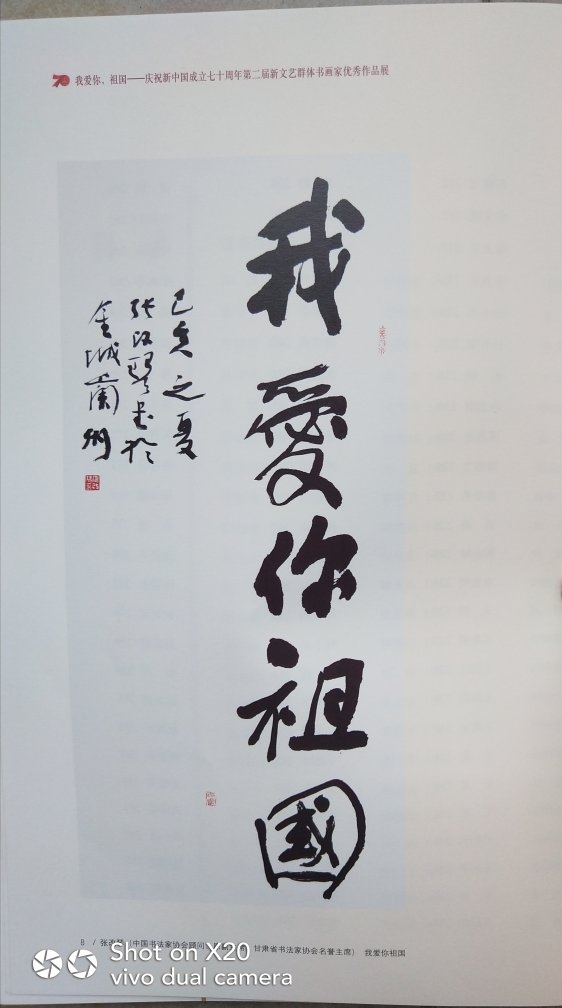 70
我爱你、祖国——庆祝新中国成立七十周年第二届新文艺群体书画家优秀作品展
我愛你祖國
己亥之夏
张改琴书於
金城蘭州
8 / 张改琴（中国书法家协会顾问 甘肃省书法家协会名誉主席） 我爱你祖国
Shot on X20
vivo dual camera